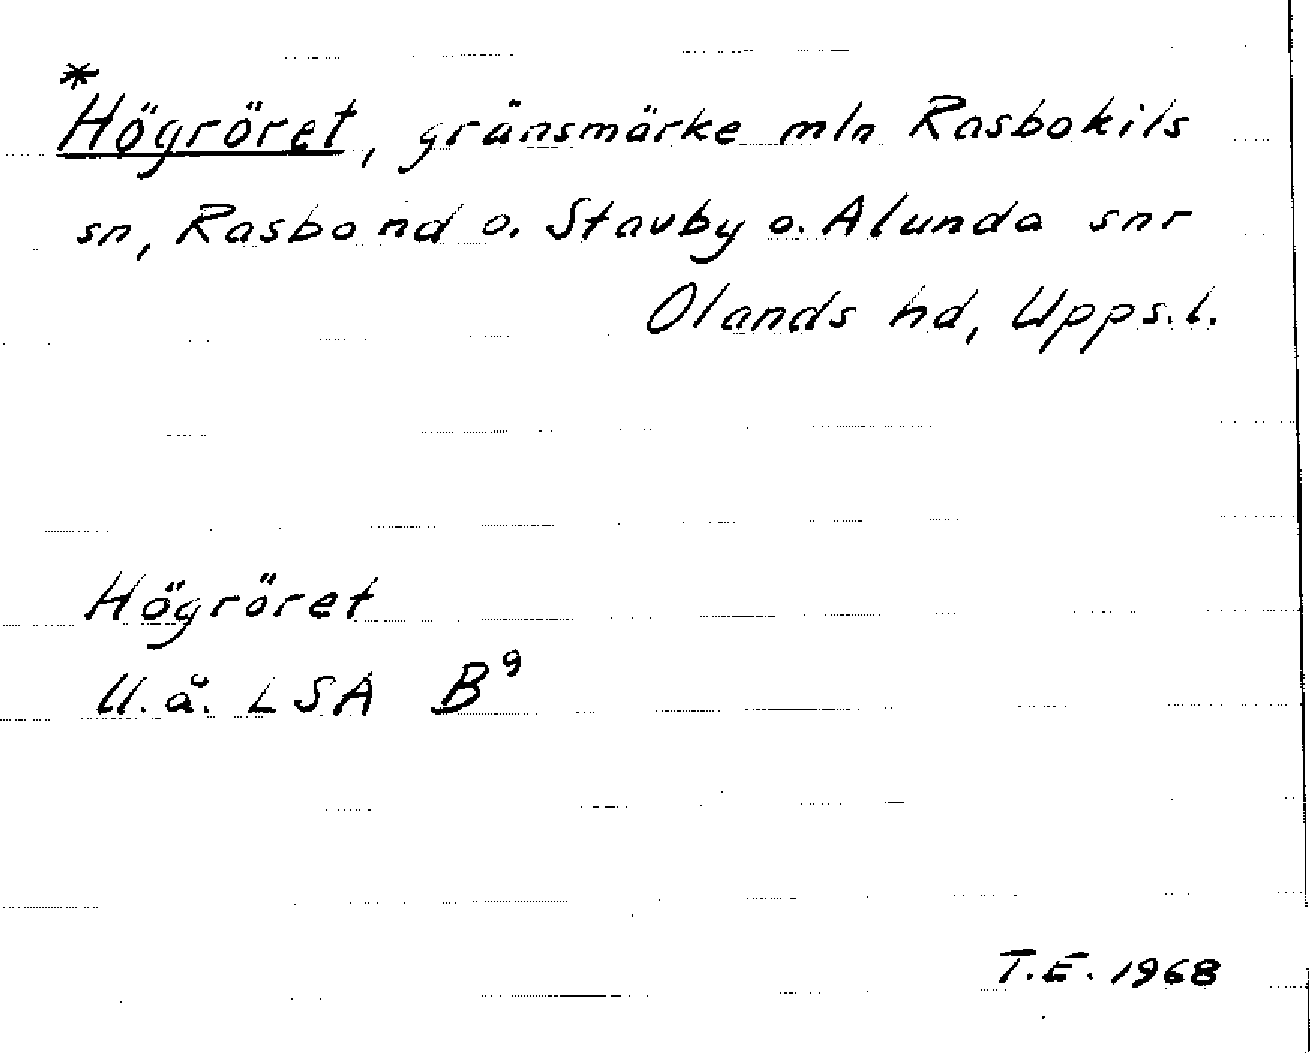 *Högröret, gränsmärke mln Rasbokils
sn, Rasbo hd o. Stavby o. Alunda snr
Olands hd, Upps.l.
Högröret
U.å. LSA B⁹
T.E. 1968